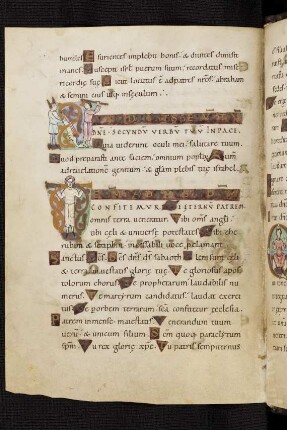 humiles Esurientes implebit bonis & diuites dimisit
inanes Suscepit isrt puerum suum recordatus mise
ricordię suę Sicut locutus est ad patres nros abraham
& semini eius usq insęculum
DNE SECUNDU VERBU TUU INPACE
Quia uiderunt oculi mei salutare tuum
Quod parasti ante faciem omnium populoru Lumen
adreuelationē gentium & glam plebis tuę israhel
CONFITEMUR TE ETERNU PATREM
omnis terra ueneratur Tibi oms angli
tibi cęli & uniuersę potestates Tibi che
rubim & seraphin incessabili uoce proclamant
Scanctus Scs Scs dns ds sabaoth Pleni sunt cęli
& terra maiestatis glorię tuę Te gloriosus apos
tolorum chorus Te prophetarum laudabilis nu
merus Te martyrum candidatus laudat exerci
tus Te per orbem terrarum sca confitetur ęcclesia
Patrem inmensę maiestatis Venerandum tuum
uerū & unicum filium Scm quoq paraclytum
spm Tu rex glorię xpe Tu patris sempiternus